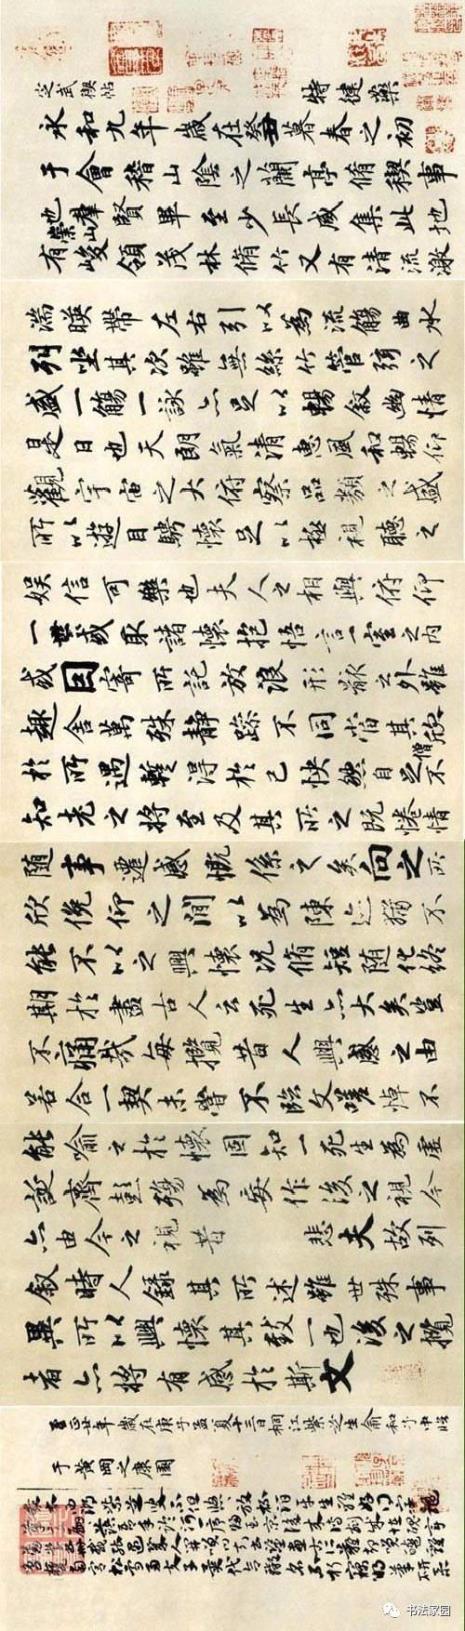 定武禊帖
特健藥
永和九年歲在癸丑暮春之初
于會稽山陰之蘭亭脩稧事
也羣賢畢至少長咸集此地
有崇山峻領茂林脩竹又有清流激
湍暎帶左右引以為流觴曲水
列坐其次雖無絲竹管弦之
盛一觴一詠亦足以暢敘幽情
是日也天朗氣清惠風和暢仰
觀宇宙之大俯察品類之盛
所以遊目騁懷足以極視聽之
娛信可樂也夫人之相與俯仰
一世或取諸懷抱悟言一室之內
或因寄所託放浪形骸之外雖
趣舍萬殊靜躁不同當其欣
僧
於所遇蹔得於己怏然自足不
知老之將至及其所之既惓情
隨事遷感慨係之矣向之所
欣俛仰之閒以為陳迹猶不
能不以之興懷況脩短隨化終
期於盡古人云死生亦大矣豈
不痛哉每攬昔人興感之由
若合一契未嘗不臨文嗟悼不
能喻之於懷固知一死生為虛
誕齊彭殤為妄作後之視今
亦由今之視昔 悲夫故列
敘時人錄其所述雖世殊事
異所以興懷其致一也後之攬
者亦將有感於斯文
至正廿年歲在庚子孟夏十三日桐江紫芝生俞和子中臨
于黃岡之康園
书法家园